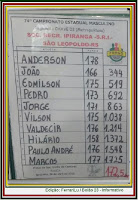 CAMPEONATO ESTADUAL MASCULINO
SOC. GINÁS. IPIRANGA
SÃO LEOPOLDO-RS
ANDERSON 178
JOÃO 166 344
EDMILSON 175 519
PEDRO 173 692
JORGE 171 863
VILSON 175 1038
VALDECIR 176 1214
HILÁRIO 158 1372
PAULO ANDRÉ 176 1548
MARCOS 177 1725
1725
Edição: FerrariLu / Bolão 23 - Informativo